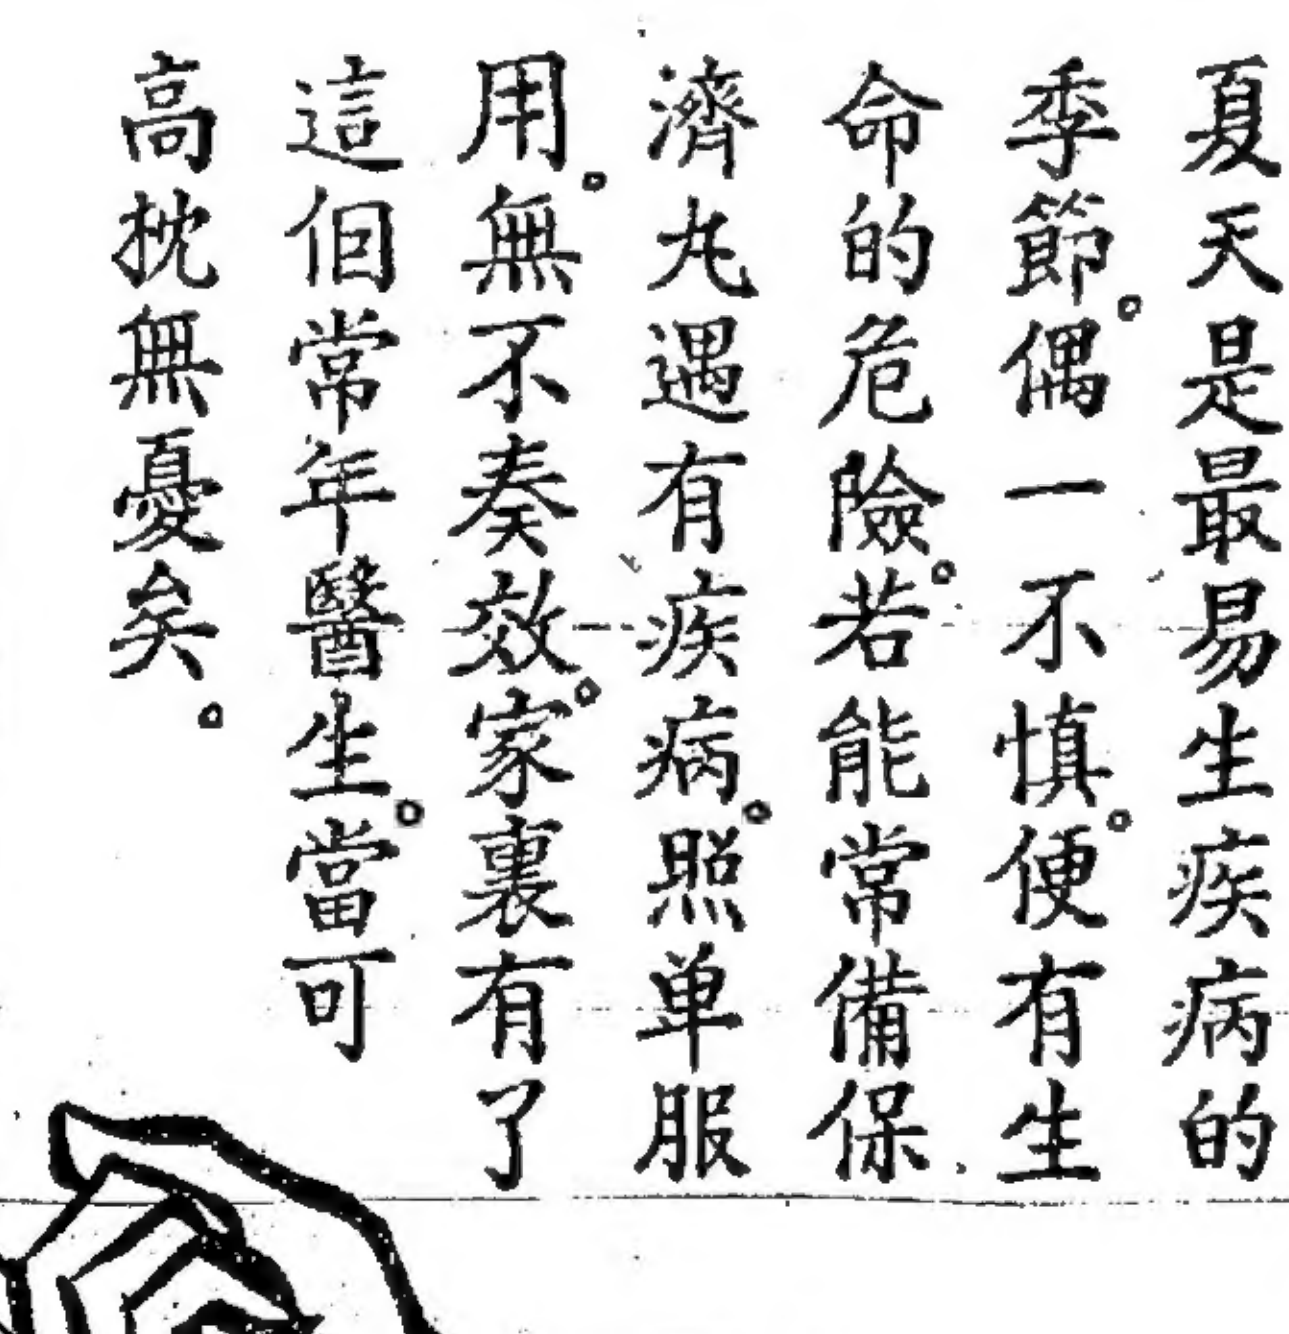 夏天是最易生疾病的
季節。偶一不慎。便有生
命的危險。若能常備保
濟丸遇有疾病。照单服
用。無不奏效。家裏有了
這個常年醫生。當可
高枕無憂矣。